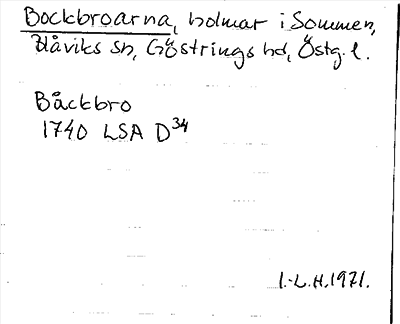 Bockbroarna, holmar i Sommen,
Blåviks sn, Göstrings hd, Östg. l.
Båckbro
1740 LSA D34
I.-L.H. 1971.